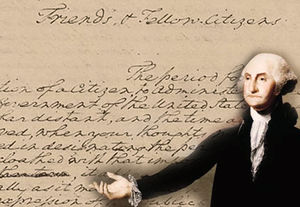 Friends, & Fellow-Citizens
The period fo
tion of a Citizen, to administe
Government of the United Stat
ver distant, and the time a
ed, when your thoughts
in designating the pe
cloathed with that im
it
ally as it m
expression of public